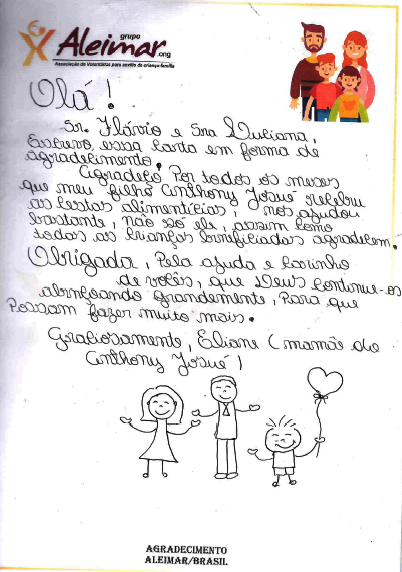 grupo
Aleimar.org
Associação de Voluntários para auxílio da criança família
Olá!
Sr. Flávio e Sra Luciana,
Escrevo essa carta em forma de
agradecimento.
Agradeço Por todos os meses
que meu filho Anthony Josué recebeu
as cestas alimentícias, nos ajudou
bastante, não só ele, assim como
todas as crianças beneficiadas agradecem.
Obrigada, Pela ajuda e carinho
de vocês, que Deus continue-os
abençoando grandemente, Para que
Possam fazer muito mais.
Graciosamente, Eliane (mamãe do
Anthony Josué)
AGRADECIMENTO
ALEIMAR/BRASIL